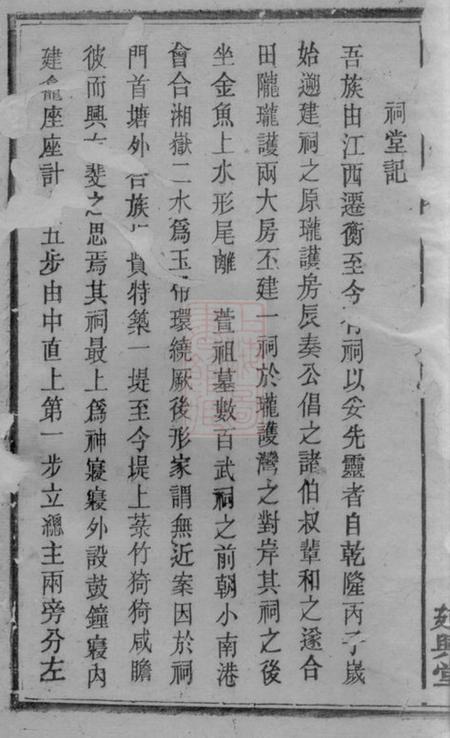 祠堂記
吾族由江西遷衡至今有祠以妥先靈者自乾隆丙子歲
始遡建祠之原瓏護房辰奏公倡之諸伯叔輩和之遂合
田隴瓏護兩大房丕建一祠於瓏護灣之對岸其祠之後
坐金魚上水形尾離 萱祖墓數百武祠之前朝小南港
會合湘嶽二水爲玉帶環繞厥後形家謂無近案因於祠
門首塘外合族 貲特築一堤至今堤上菉竹猗猗咸瞻
彼而興 斐之思焉其祠最上爲神寢寢外設鼓鐘寢内
建龕座座計 五步由中直上第一步立總主兩旁分左
興堂